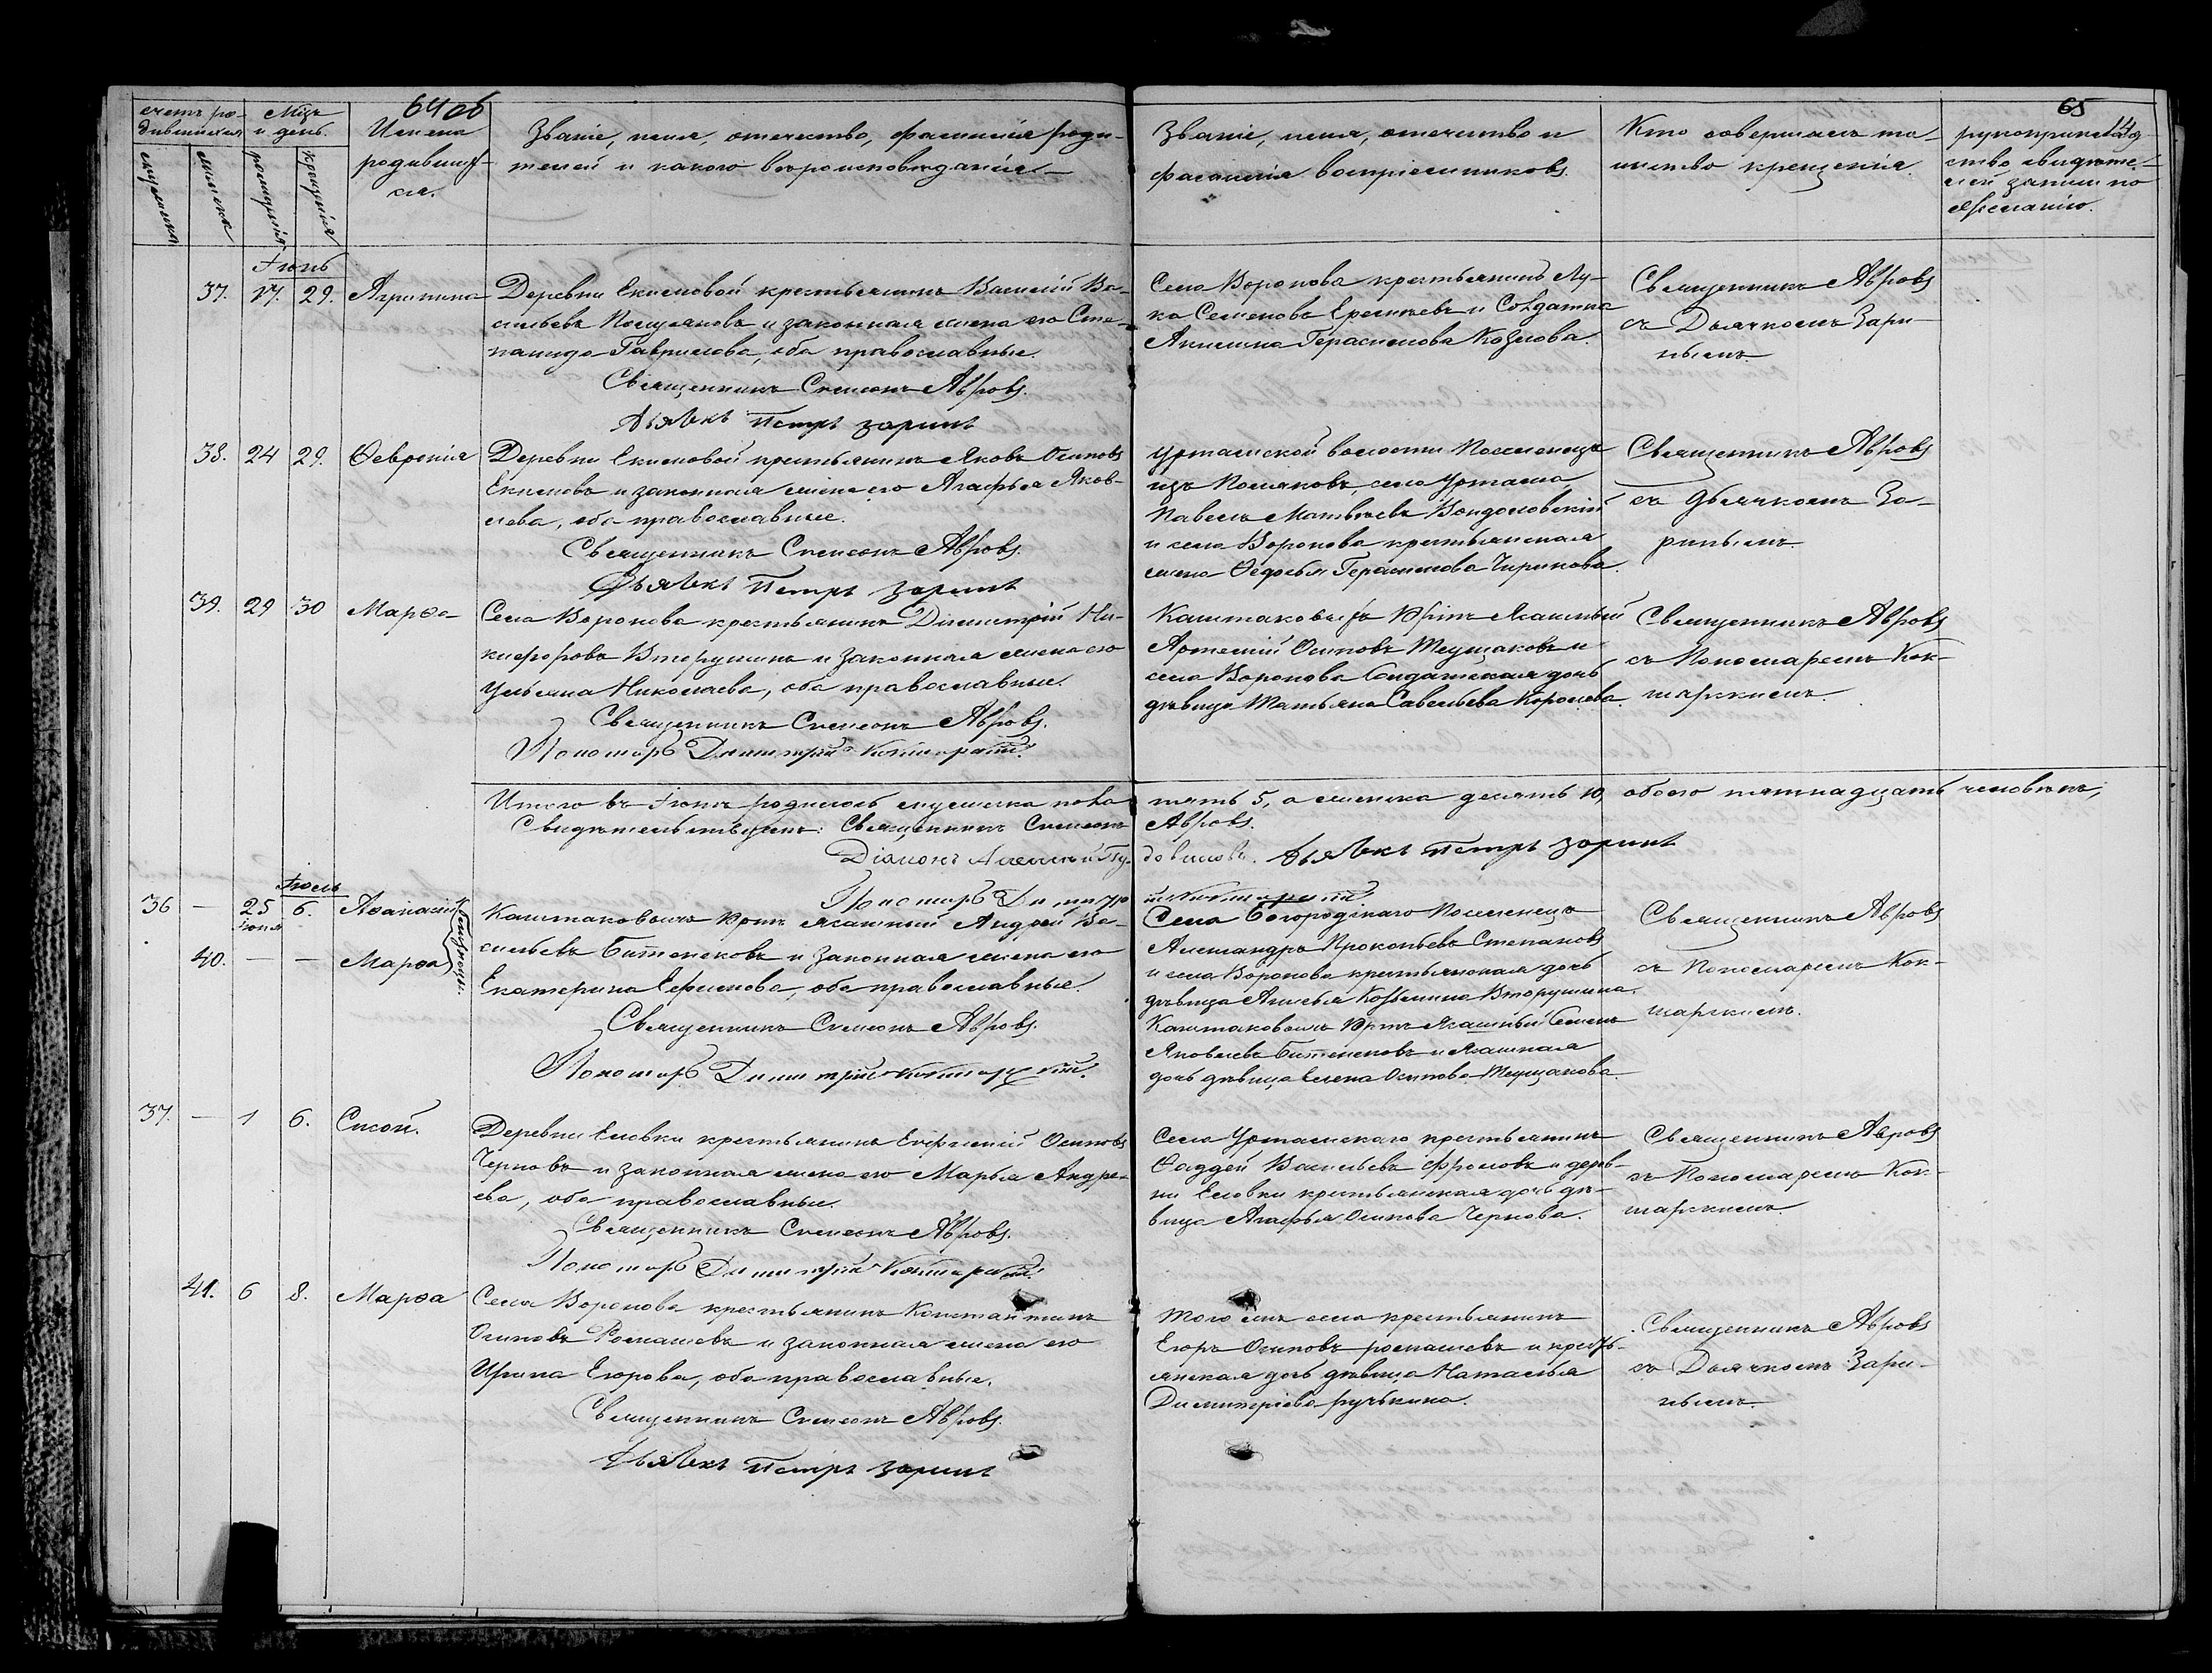 64 об
65
счетъ ро-
дившихся
Мѣс.
и день.
мужеска
женска
рожденія
крещенія
Имена
родивших-
ся.
Званіе, имя, отчество, фамилія роди-
телей и какого вѣроисповѣданія
Званіе, имя, отчество и
фамилія воспріемниковъ.
Кто совершалъ та-
инство крещенія.
рукоприклад
ство свидѣте-
лей записи по
желанію.
Іюнь
37. 17. 29. Агрипина
Деревни Екимовой крестьянинъ Василій Ва-
сильевъ и законная жена его Сте-
панида Гаврилова, оба православные.
Священникъ Симеонъ Авровъ.
Дьячекъ Петръ Заринъ
Села Воронова крестьянинъ Лу-
ка Семеновъ и Солдатка
Акилина Герасимова Козлова.
Священникъ Авровъ
съ Дьячкомъ Зари-
нымъ.
38. 24 29. Ѳевронія
Деревни Екимовой крестьянинъ Яковъ Осиповъ
Екимовъ и законная жена его Агафья Яков-
лева, оба православные.
Священникъ Симеонъ Авровъ.
Дьячекъ Петръ Заринъ
Уртамской волости Поселенецъ
изъ Поляковъ, села Уртама,
Павелъ Матвѣевъ
и села Воронова крестьянская
жена Ѳедосья Герасимова Чирикова.
Священникъ Авровъ
съ Дьячкомъ За-
ринымъ.
39. 29 30 Марѳа
Села Воронова крестьянинъ Димитрій Ни-
кифоровъ Вторушинъ и законная жена его
Ульяна Николаева, оба православные.
Священникъ Симеонъ Авровъ.
Пономарь Димитрій Кокшарскій.
Каштаковыхъ Юртъ Ясашный
Артемій Осиповъ Теущаковъ и
села Воронова Солдатская дочь
дѣвица Татьяна Савельева Королева.
Священникъ Авровъ
съ Пономаремъ Кок-
шарскимъ.
Итого въ Іюнѣ родилось мужеска пола пять 5, а женска десять 10, обоего пятнадцать человѣкъ,
Свидѣтельствуемъ: Священникъ Симеонъ Авровъ.
Діаконъ Алексѣй Дьячекъ Петръ Заринъ
Пономарь Димитрій Кокшарскій
Іюль
36 — 25 іюня 6. Аѳанасій
40. — — Марѳа
близнецы.
Каштаковыхъ Юртъ Ясашный Андрей Ва-
сильевъ и законная жена его
Екатерина Ефимова, оба православные.
Священникъ Симеонъ Авровъ.
Пономарь Димитрій Кокшарскій.
Села Богородскаго Поселенецъ
Александръ Прокопьевъ Степановъ
и села Воронова крестьянская дочь
дѣвица Анисья Козьмина Вторушина.
Каштаковыхъ Юртъ Ясашный Семенъ
Яковлевъ и Ясашная
дочь дѣвица Елена Осипова Теущакова.
Священникъ Авровъ
съ Пономаремъ Кок-
шарскимъ.
37. — 1 6. Сисой.
Деревни Еловки крестьянинъ Евфимій Осиповъ
Черновъ и законная жена его Марья Андре-
ева, оба православные.
Священникъ Симеонъ Авровъ.
Пономарь Димитрій Кокшарскій.
Села Уртамскаго крестьянинъ
Ѳаддей Васильевъ Фроловъ и дерев-
ни Еловки крестьянская дочь дѣ-
вица Агафья Осипова Чернова.
Священникъ Авровъ
съ Пономаремъ Кок-
шарскимъ.
41. 6 8. Марѳа
Села Воронова крестьянинъ Константинъ
Осиповъ Ромашевъ и законная жена его
Ирина Егорова, оба православные.
Священникъ Симеонъ Авровъ.
Дьячекъ Петръ Заринъ
Того жъ села крестьянинъ
Егоръ Осиповъ ромашевъ и кресть-
янская дочь дѣвица Наталья
Димитріева ручькина.
Священникъ Авровъ
съ Дьячкомъ Зари-
нымъ.